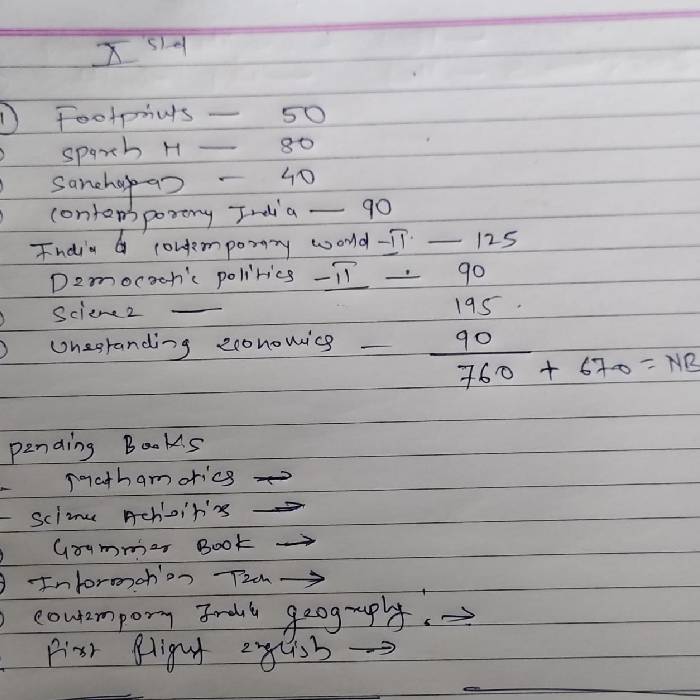 X Std
1 Footprints — 50
Sparsh H — 80
Sanchayan — 40
Contemporary India — 90
India & Contemporary world -II — 125
Democratic politics -II — 90
Science — 195
Unerstanding economics — 90
760 + 670 = NB
pending Books
Mathamatics →
Science Activities →
Grammer Book →
Information Tech →
Contempory India geography →
First flight english →